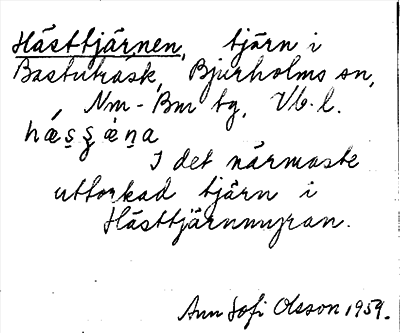 Hästtjärnen, tjärn i
Bastuträsk, Bjurholms sn,
Nm-Bm tg, Vb. l.
I det närmaste
uttorkad tjärn i
Hästtjärnmyran.
Ann Sofi Olsson 1959.